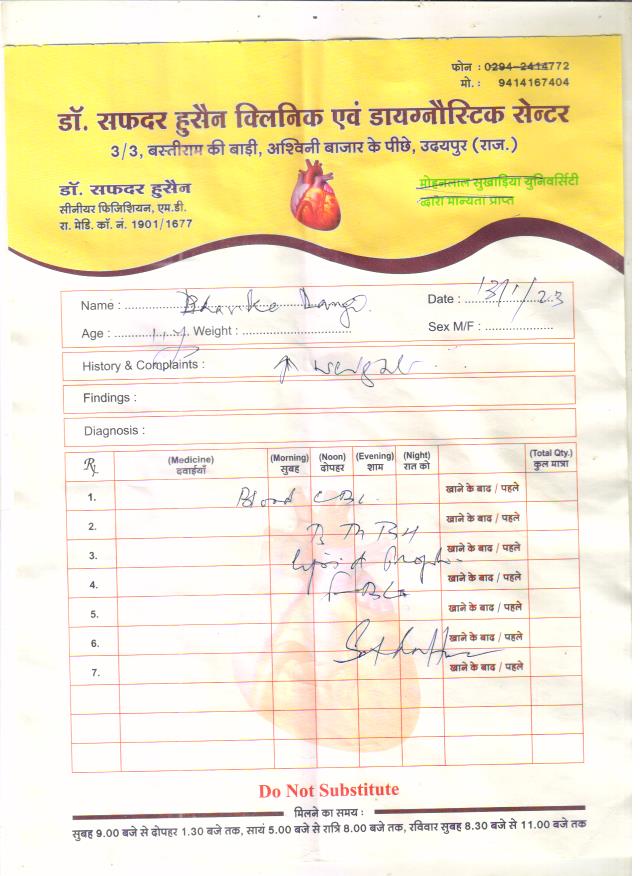 फोन : 0294-2414772
मो. : 9414167404
डॉ. सफदर हुसैन क्लिनिक एवं डायग्नौस्टिक सेन्टर
3/3, बस्तीराम की बाड़ी, अश्विनी बाजार के पीछे, उदयपुर (राज.)
डॉ. सफदर हुसैन
सीनीयर फिजिशियन, एम.डी.
रा. मेडि. कॉ. नं. 1901/1677
मोहनलाल सुखाड़िया युनिवर्सिटी
द्वारा मान्यता प्राप्त
Name : Date : 13/1/23
Age : Weight : Sex M/F :
History & Complaints : ↑
Findings :
Diagnosis :
Rx (Medicine) दवाईयाँ (Morning) सुबह (Noon) दोपहर (Evening) शाम (Night) रात को (Total Qty.) कुल मात्रा
1. Blood CBC खाने के बाद / पहले
2. खाने के बाद / पहले
3. खाने के बाद / पहले
4. खाने के बाद / पहले
5. खाने के बाद / पहले
6. खाने के बाद / पहले
7. खाने के बाद / पहले
Do Not Substitute
मिलने का समय :
सुबह 9.00 बजे से दोपहर 1.30 बजे तक, सायं 5.00 बजे से रात्रि 8.00 बजे तक, रविवार सुबह 8.30 बजे से 11.00 बजे तक